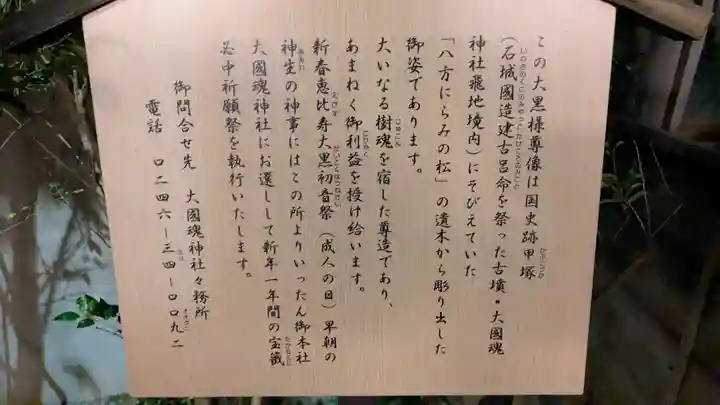 この大黒様尊像は国史跡甲塚
（石城國造建古呂命を祭った古墳・大國魂
神社飛地境内）にそびえていた
「八方にらみの松」の遺木から彫り出した
御姿であります。
大いなる樹魂を宿した尊造であり、
あまねく御利益を授け給います。
新春恵比寿大黒初音祭（成人の日）早朝の
神生の神事にはこの所よりいったん御本社
大國魂神社にお遷しして新年一年間の宝籤
必中祈願祭を執行いたします。
御問合せ先　大國魂神社々務所
電話　〇二四六ー三四ー〇〇九二